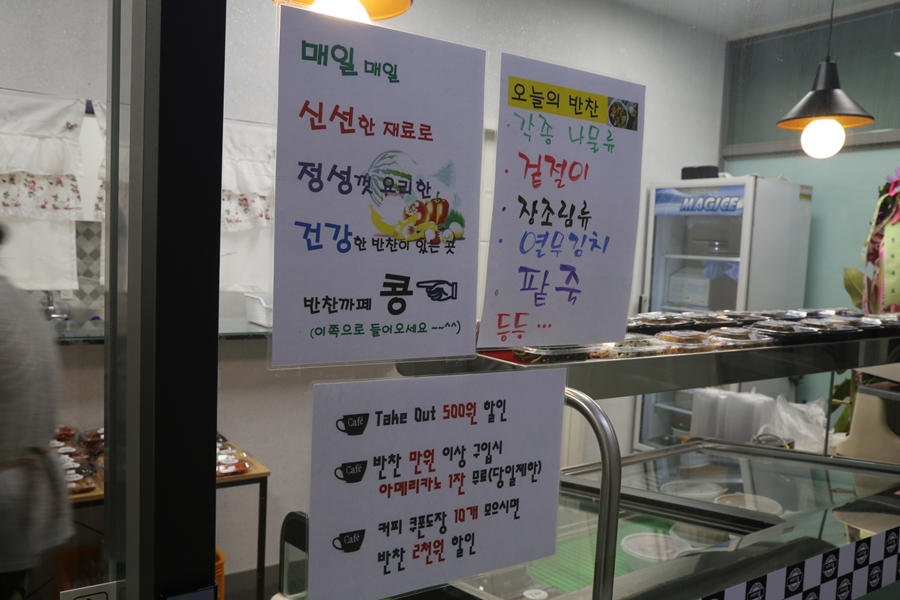 매일 매일
신선한 재료로
정성껏 요리한
건강한 반찬이 있는 곳
반찬까페 콩
(이쪽으로 들어오세요 ~~^^)
오늘의 반찬
· 각종 나물류
· 겉절이
· 장조림류
· 열무김치
· 팥죽
등등 ...
Café Take Out 500원 할인
Café 반찬 만원 이상 구입시
아메리카노 1잔 무료(당일제한)
Café 커피 쿠폰도장 10개 모으시면
반찬 2천원 할인
MAGICE